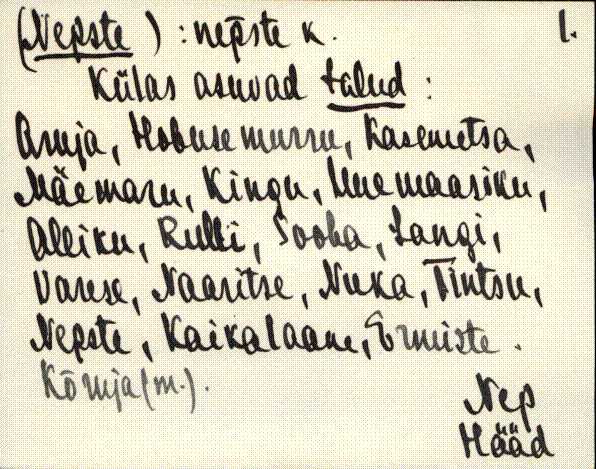 (Nepste) : nepste k. 1.
Külas asuvad talud :
Aruja, Hobusemurru, Kasemetsa,
Mäemaru, Kingu, Uuemaasiku,
Alliku, Rulli, Sooba, Langi,
Varese, Naaritse, Nuka, Tintsu,
Nepste, Kaikalaane, Ermiste.
Kõruja (m.).
Nep
Hääd